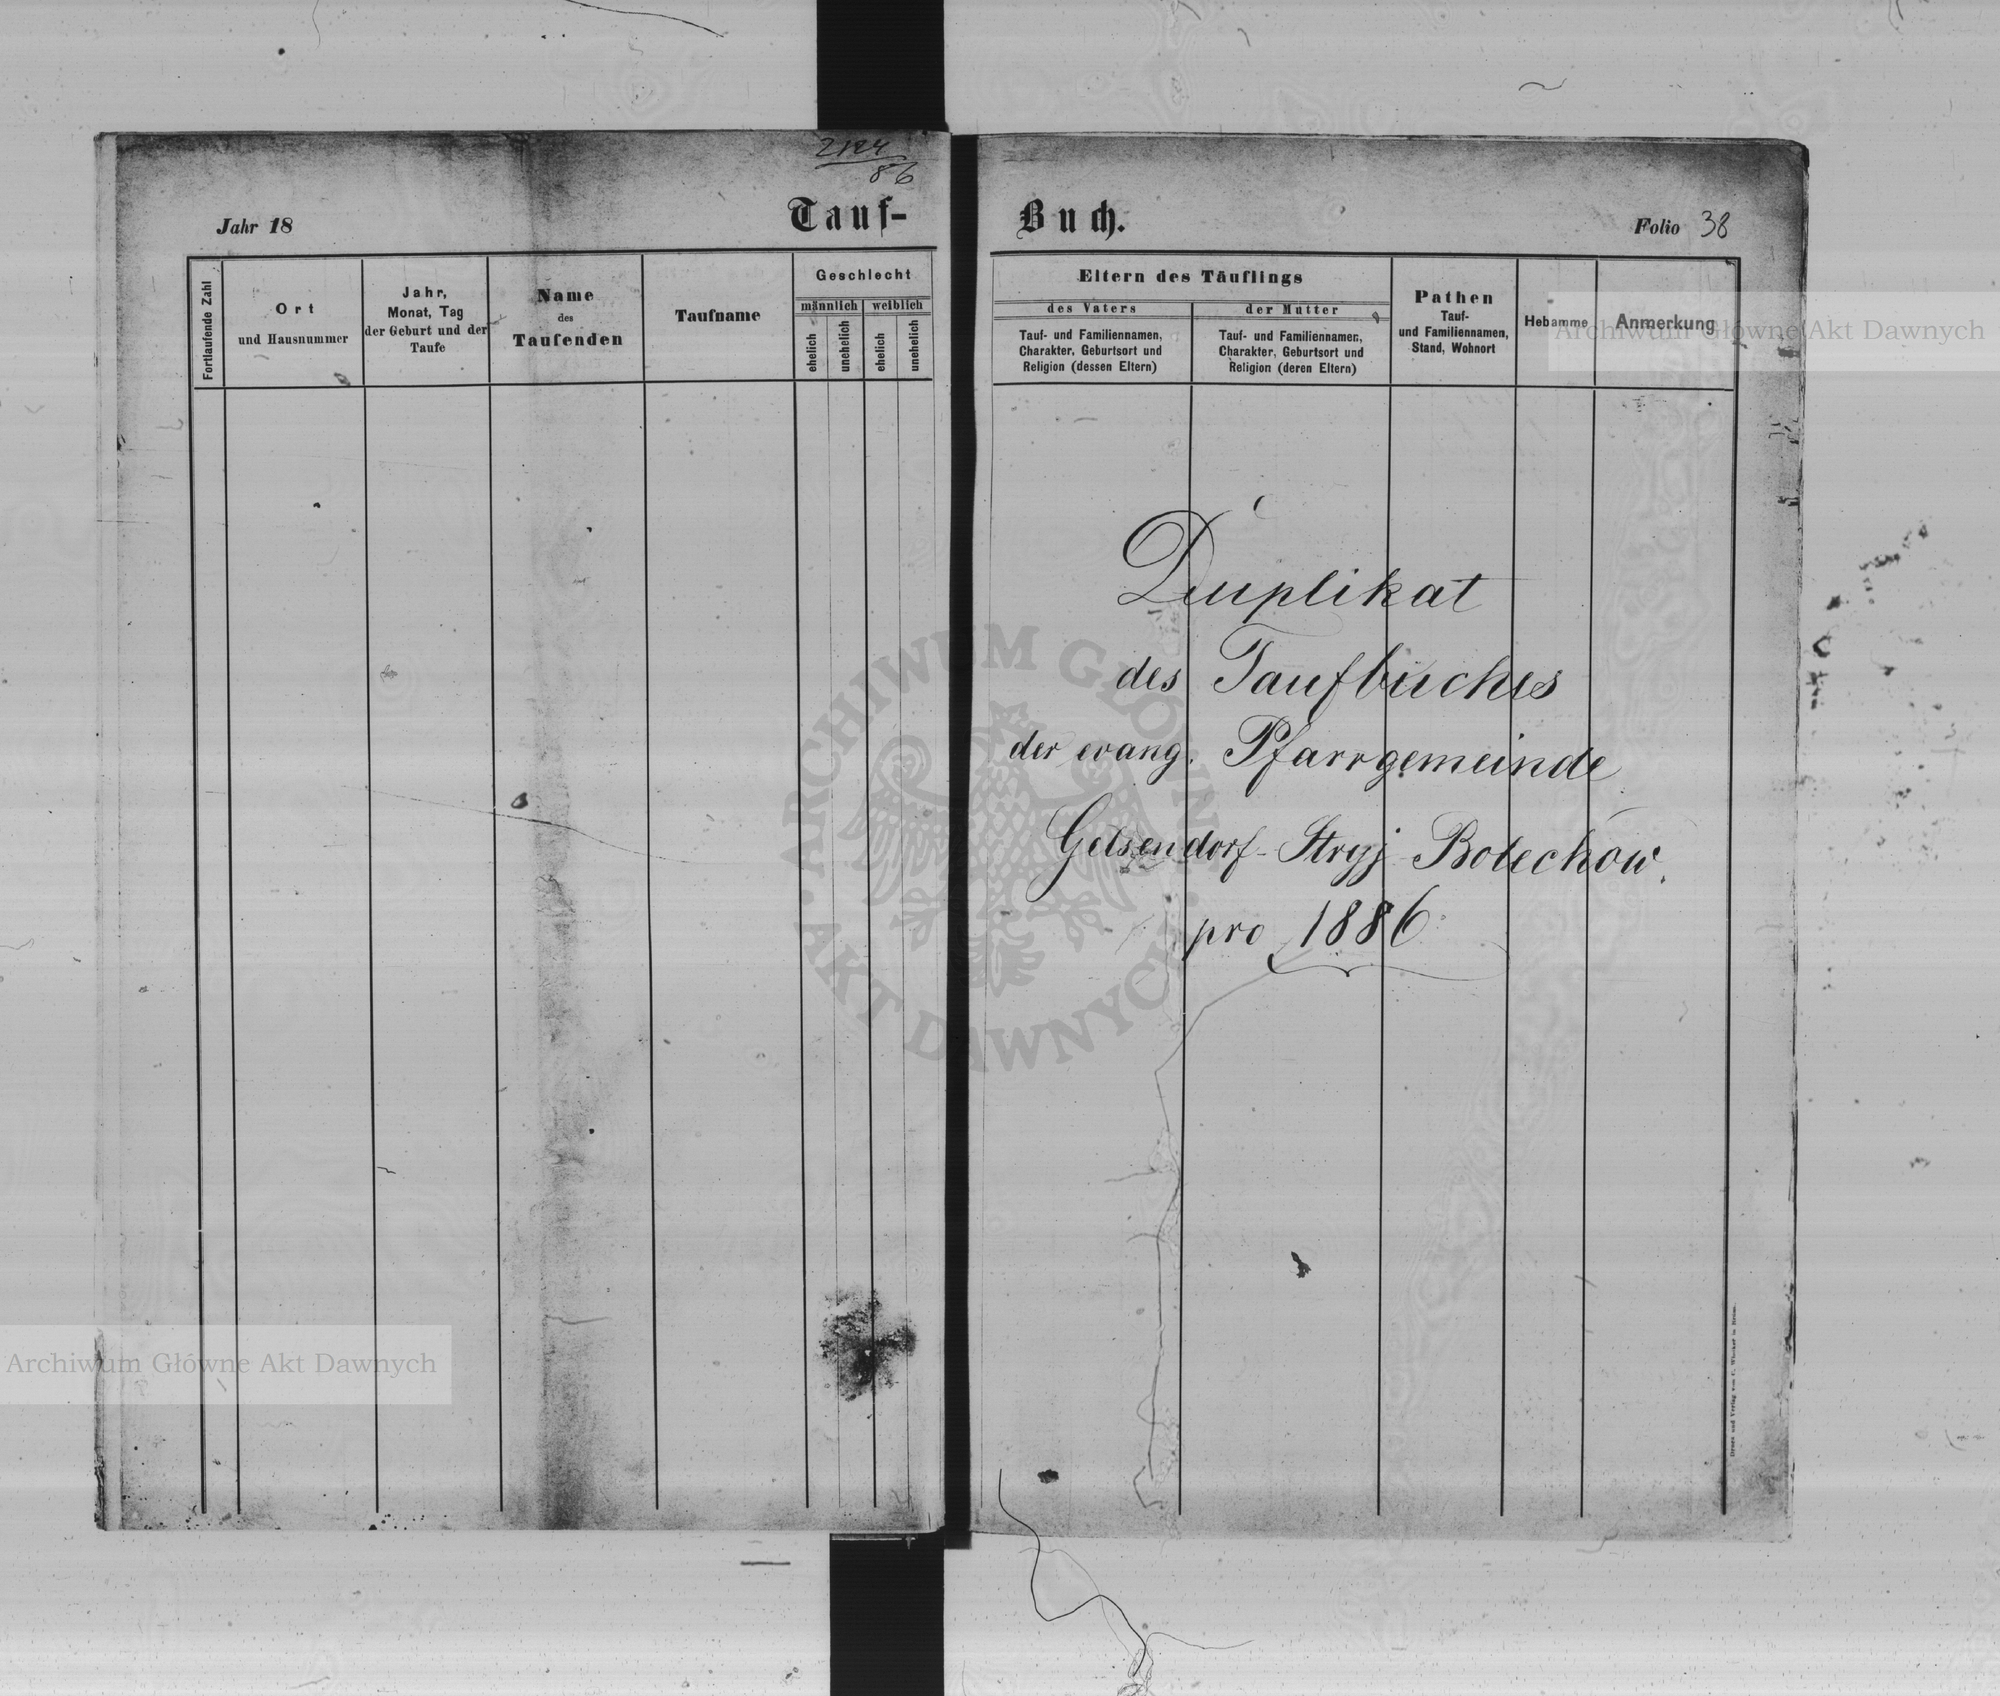 2124
86
Jahr 18
Tauf-
Fortlaufende Zahl
Ort
und Hausnummer
Jahr,
Monat, Tag
der Geburt und der
Taufe
Name
des
Taufenden
Taufname
Geschlecht
männlich weiblich
ehelich
unehelich
ehelich
unehelich
Buch.
Folio 38
Eltern des Täuflings
des Vaters
Tauf- und Familiennamen,
Charakter, Geburtsort und
Religion (dessen Eltern)
der Mutter
Tauf- und Familiennamen,
Charakter, Geburtsort und
Religion (deren Eltern)
Pathen
Tauf-
und Familiennamen,
Stand, Wohnort
Hebamme
Anmerkung
Archiwum Główne Akt Dawnych
Duplikat
des Taufbuches
der evang. Pfarrgemeinde
Gelsendorf-Stryj-Bolechow.
pro 1886
ARCHIWUM GŁÓWNE
AKT DAWNYCH
Archiwum Główne Akt Dawnych